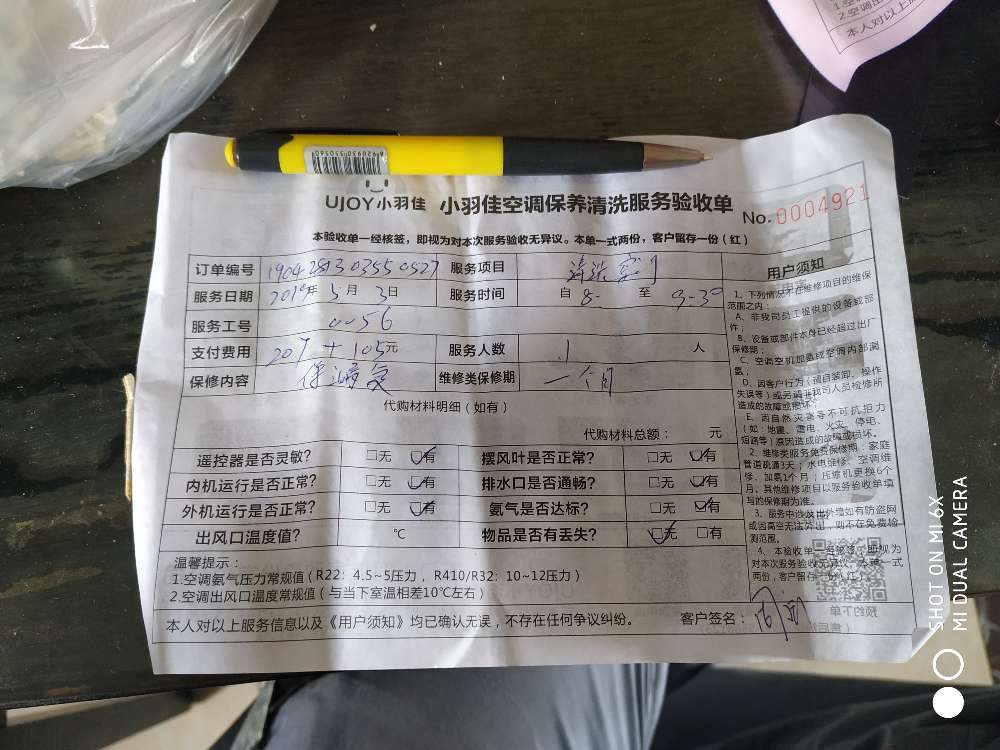 1.空
2.空调出
本人对以上服
6920930330360
UJOY小羽佳 小羽佳空调保养清洗服务验收单 No. 0004921
本验收单一经核签，即视为对本次服务验收无异议。本单一式两份，客户留存一份（红）
订单编号 1904281303550527 服务项目
服务日期 2019年 5月 3日 服务时间 自 8- 至 9-30
服务工号 0056
支付费用 207 + 105元 服务人数 1 人
保修内容 维修类保修期 一个月
代购材料明细（如有）
代购材料总额： 元
遥控器是否灵敏? □无 ☑有 摆风叶是否正常? □无 ☑有
内机运行是否正常? □无 ☑有 排水口是否通畅? □无 ☑有
外机运行是否正常? □无 ☑有 氨气是否达标? □无 ☑有
出风口温度值? ℃ 物品是否有丢失? ☑无 □有
温馨提示：
1.空调氨气压力常规值（R22：4.5~5压力，R410/R32：10~12压力）
2.空调出风口温度常规值（与当下室温相差10℃左右）
本人对以上服务信息以及《用户须知》均已确认无误，不存在任何争议纠纷。 客户签名：
用户须知
1、下列情况不在维修项目的维保
范围之内：
A、非我司员工提供的设备或部
件；
B、设备或部件本身已经超过出厂
保修期；
C、空调空机加氨或空调内部漏
氨；
D、因客户行为（擅自装卸、操作
失误等）或另请非我司人员检修所
造成的故障或损坏。
E、因自然灾害等不可抗拒力
（如：地震、雷电、火灾、停电、
短路等）原因造成的故障或损坏。
2、维修类服务免费保修期：家庭
管道疏通3天；水电维修、空调维
修、加氨1个月；压缩机更换6个
月。其他维修项目以服务验收单填
写的保修期为准。
3、服务中涉及出外墙如有防盗网
或因高空无法外出，则不在免费检
测范围。
4、本验收单一经签字，即视为
对本次服务验收无异议。本单一式
两份，客户留存一份（红）
SHOT ON MI 6X
MI DUAL CAMERA